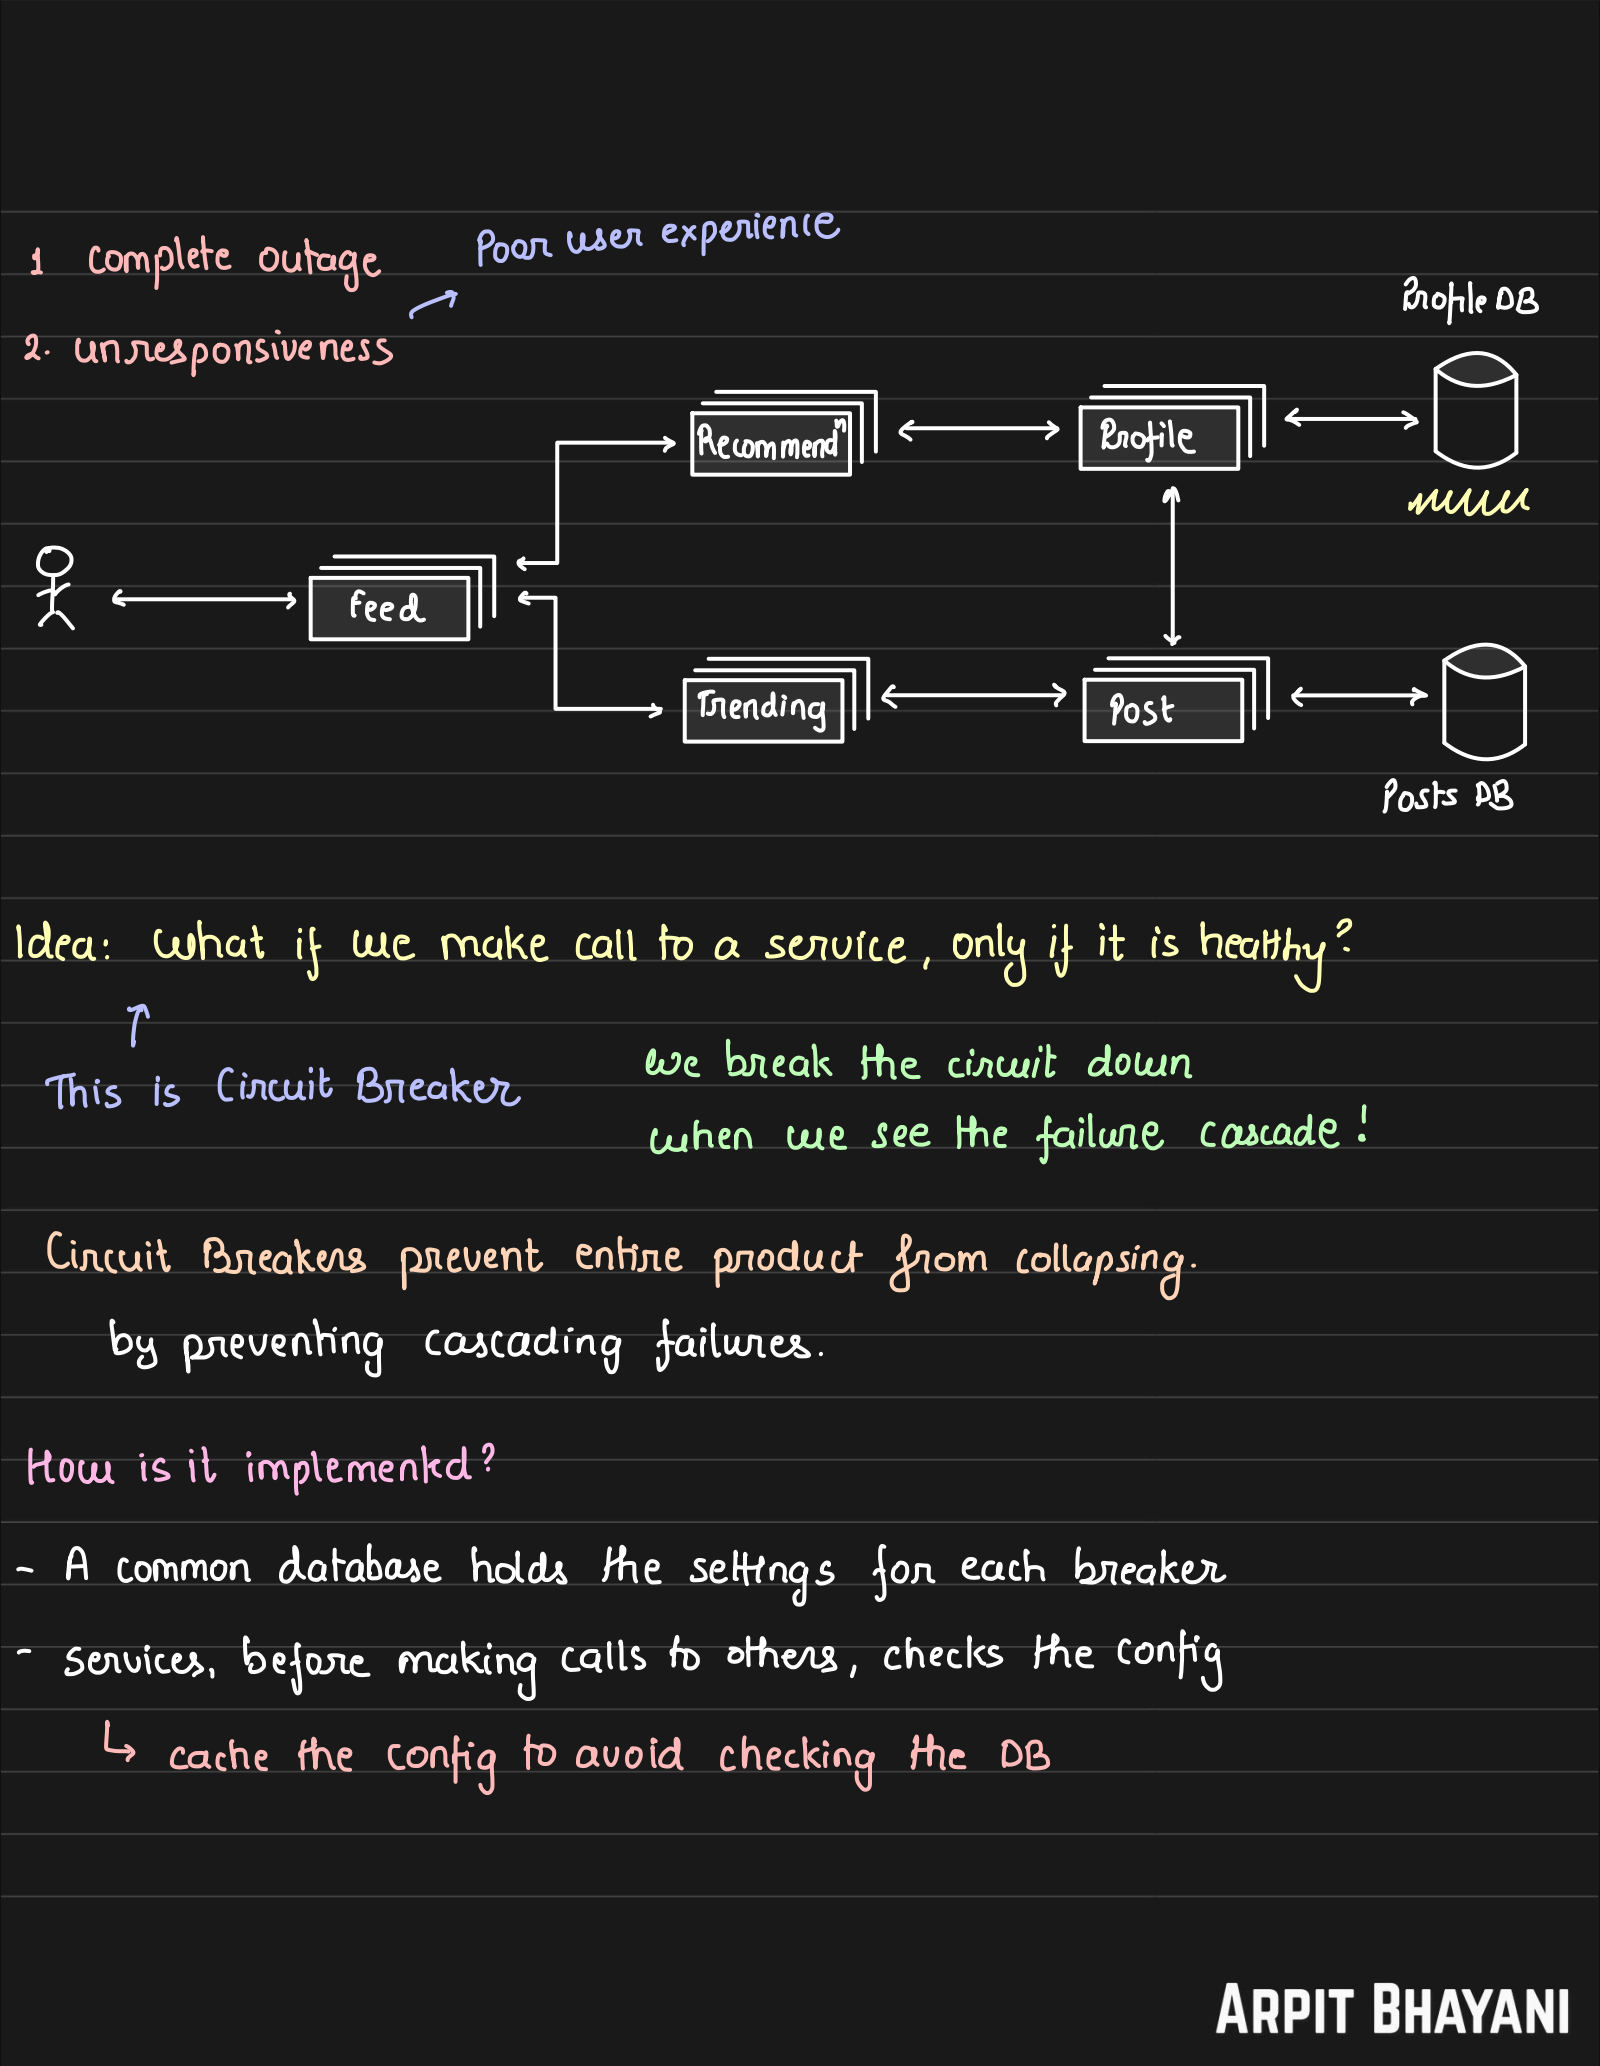 1 complete outage
Poor user experience
2. unresponsiveness
Profile DB
Recommendⁿ
Profile
Feed
Trending
Post
Posts DB
Idea: What if we make call to a service, only if it is healthy?
This is Circuit Breaker
we break the circuit down
when we see the failure cascade!
Circuit Breakers prevent entire product from collapsing.
by preventing cascading failures.
How is it implemented?
- A common database holds the settings for each breaker
- services, before making calls to others, checks the config
cache the config to avoid checking the DB
ARPIT BHAYANI